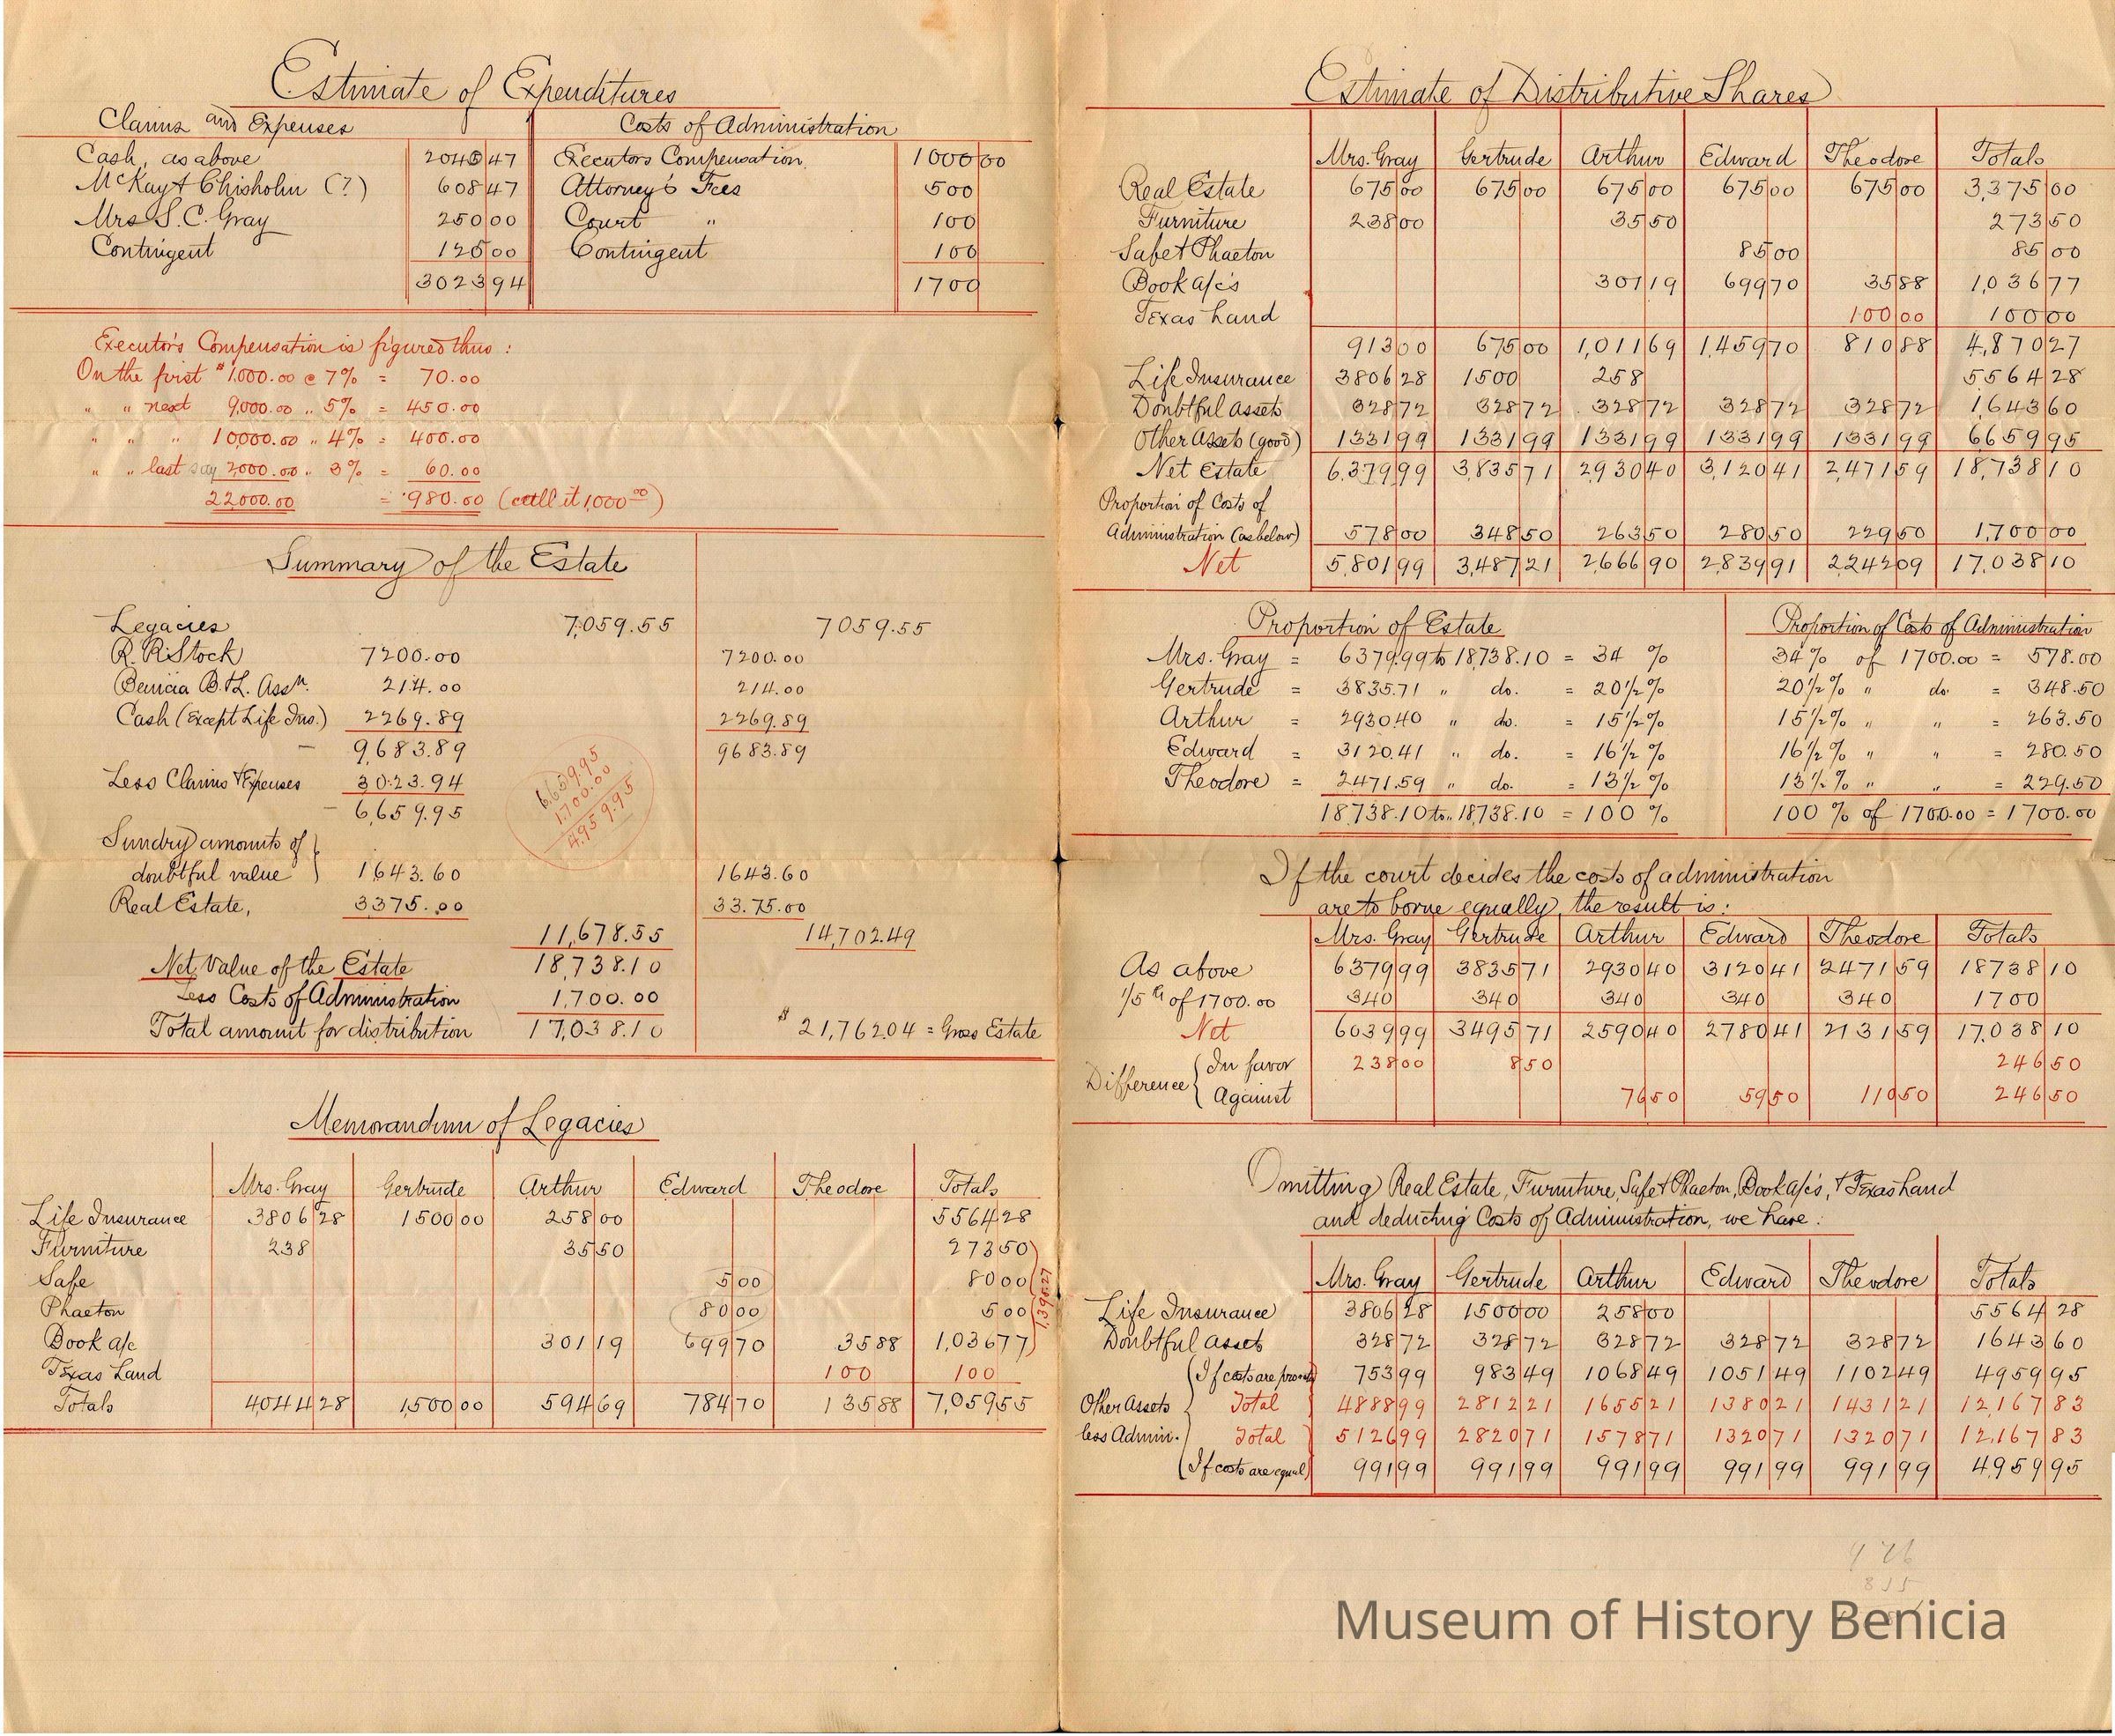 Estimate of Expenditures
Claims and Expenses Costs of Administration
Cash, as above 2040 47 Executors Compensation 1000 00
McKay & Chisholm (?) 608 47 Attorney's Fees 500
Mrs S. C. Gray 250 00 Court " 100
Contingent 125 00 Contingent 100
3023 94 1700
Executor's Compensation is figured thus:
On the first $1,000.00 @ 7% = 70.00
" " next 9,000.00 " 5% = 450.00
" " " 10000.00 " 4% = 400.00
" " last say 2,000.00 " 3% = 60.00
22000.00 = 980.00 (call it 1,000 00)
Summary of the Estate
Legacies 7,059.55 7059.55
R. R. Stock 7200.00 7200.00
Benicia B. & L. Assn. 214.00 214.00
Cash (Except Life Ins.) 2269.89 2269.89
9,683.89 9683.89
Less Claims & Expenses 3023.94
6,659.95
6,659.95
1,700.00
4,959.95
Sundry amounts of
doubtful value 1643.60 1643.60
Real Estate, 3375.00 33.75.00
11,678.55 14,702.49
Net Value of the Estate 18,738.10
Less Costs of Administration 1,700.00
Total amount for distribution 17,038.10 $21,762.04 = Gross Estate
Memorandum of Legacies
Mrs. Gray Gertrude Arthur Edward Theodore Totals
Life Insurance 3806 28 1500 00 258 00 5564 28
Furniture 238 35 50 273 50
Safe 5 00 80 00
Phaeton 80 00 5 00
1,395.27
Book a/c 301 19 699 70 35 88 1,036 77
Texas Land 100 100
Totals 4,044 28 1,500 00 594 69 784 70 135 88 7,059 55
Estimate of Distributive Shares
Mrs. Gray Gertrude Arthur Edward Theodore Totals
Real Estate 675 00 675 00 675 00 675 00 675 00 3,375 00
Furniture 238 00 35 50 273 50
Safe & Phaeton 85 00 85 00
Book a/c's 301 19 699 70 35 88 1,036 77
Texas Land 100 00 100 00
913 00 675 00 1,011 69 1,459 70 810 88 4,870 27
Life Insurance 3806 28 1500 258 5564 28
Doubtful Assets 328 72 328 72 328 72 328 72 328 72 1,643 60
Other Assets (good) 1331 99 1331 99 1331 99 1331 99 1331 99 6659 95
Net Estate 6,379 99 3,835 71 2,930 40 3,120 41 2,471 59 18,738 10
Proportion of Costs of
Administration (as below) 578 00 348 50 263 50 280 50 229 50 1,700 00
Net 5,801 99 3,487 21 2,666 90 2,839 91 2,242 09 17,038 10
Proportion of Estate Proportion of Costs of Administration
Mrs. Gray = 6379.99 to 18738.10 = 34 % 34% of 1700.00 = 578.00
Gertrude = 3835.71 " do. = 20 1/2 % 20 1/2 % " do = 348.50
Arthur = 2930.40 " do. = 15 1/2 % 15 1/2 % " " = 263.50
Edward = 3120.41 " do. = 16 1/2 % 16 1/2 % " " = 280.50
Theodore = 2471.59 " do. = 13 1/2 % 13 1/2 % " " = 229.50
18,738.10 to 18,738.10 = 100 % 100 % of 1700.00 = 1700.00
If the court decides the costs of administration
are to borne equally, the result is:
Mrs. Gray Gertrude Arthur Edward Theodore Totals
As above 6379 99 3835 71 2930 40 3120 41 2471 59 18738 10
1/5 th of 1700.00 340 340 340 340 340 1700
Net 6039 99 3495 71 2590 40 2780 41 2131 59 17,038 10
Difference { In favor 238 00 8 50 246 50
Against 76 50 59 50 110 50 246 50
Omitting Real Estate, Furniture, Safe & Phaeton, Book a/c's, & Texas Land
and deducting Costs of Administration, we have:
Mrs. Gray Gertrude Arthur Edward Theodore Totals
Life Insurance 3806 28 1500 00 258 00 5564 28
Doubtful Assets 328 72 328 72 328 72 328 72 328 72 1643 60
(If costs are 753 99 983 49 1068 49 1051 49 1102 49 4959 95
Other Assets Total 4888 99 2812 21 1655 21 1380 21 1431 21 12,167 83
less Admin. Total 5126 99 2820 71 1578 71 1320 71 1320 71 12,167 83
(If costs are equal) 991 99 991 99 991 99 991 99 991 99 4959 95
Museum of History Benicia